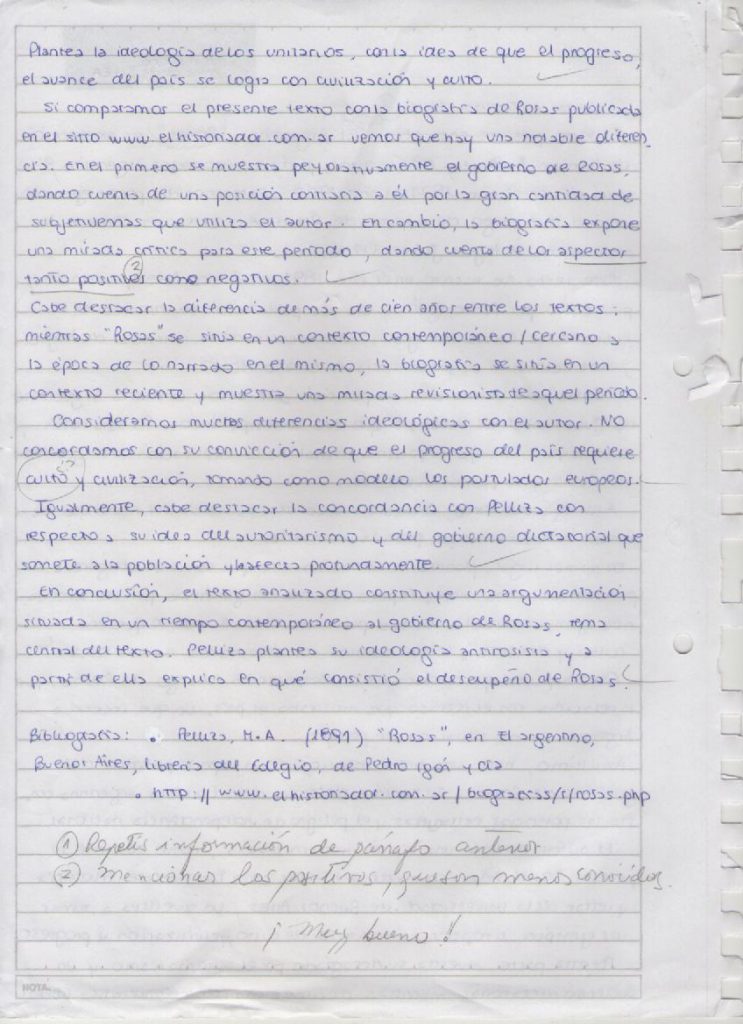 Plantea la ideología de los unitarios, con la idea de que el progreso,
el avance del país se logra con civilización y culto.
Si comparamos el presente texto con la biografía de Rosas publicada
en el sitio www.elhistoriador.com.ar vemos que hay una notable diferen
cia. En el primero se muestra peyorativamente el gobierno de Rosas,
dando cuenta de una posición contraria a él por la gran cantidad de
subjetivemas que utiliza el autor. En cambio, la biografía expone
una mirada crítica para este período, dando cuenta de los aspectos
tanto positivos (2) como negativos.
Cabe destacar la diferencia de más de cien años entre los textos;
mientras "Rosas" se sitúa en un contexto contemporáneo/cercano a
la época de lo narrado en el mismo, la biografía se sitúa en un
contexto reciente y muestra una mirada revisionista de aquel período.
Consideramos muchas diferencias ideológicas con el autor. No
concordamos con su convicción de que el progreso del país requiere
culto y civilización, tomando como modelo los postulados europeos.
Igualmente, cabe destacar la concordancia con Pelliza con
respecto a su idea del autoritarismo y del gobierno dictatorial que
somete a la población y la afecta profundamente.
En conclusión, el texto analizado constituye una argumentación
situada en un tiempo contemporáneo al gobierno de Rosas, tema
central del texto. Pelliza plantea su ideología antirosista y a
partir de ella explica en qué consistió el desempeño de Rosas.
Bibliografía: • Pelliza, M.A. (1891) "Rosas", en El argentino,
Buenos Aires, librería del Colegio, de Pedro Igón y cía
• http://www.elhistoriador.com.ar/biografias/r/rosas.php
(1) Repetís información de párrafo anterior
(2) Mencionar los positivos, que son menos conocidos.
¡Muy bueno!
NOTA: